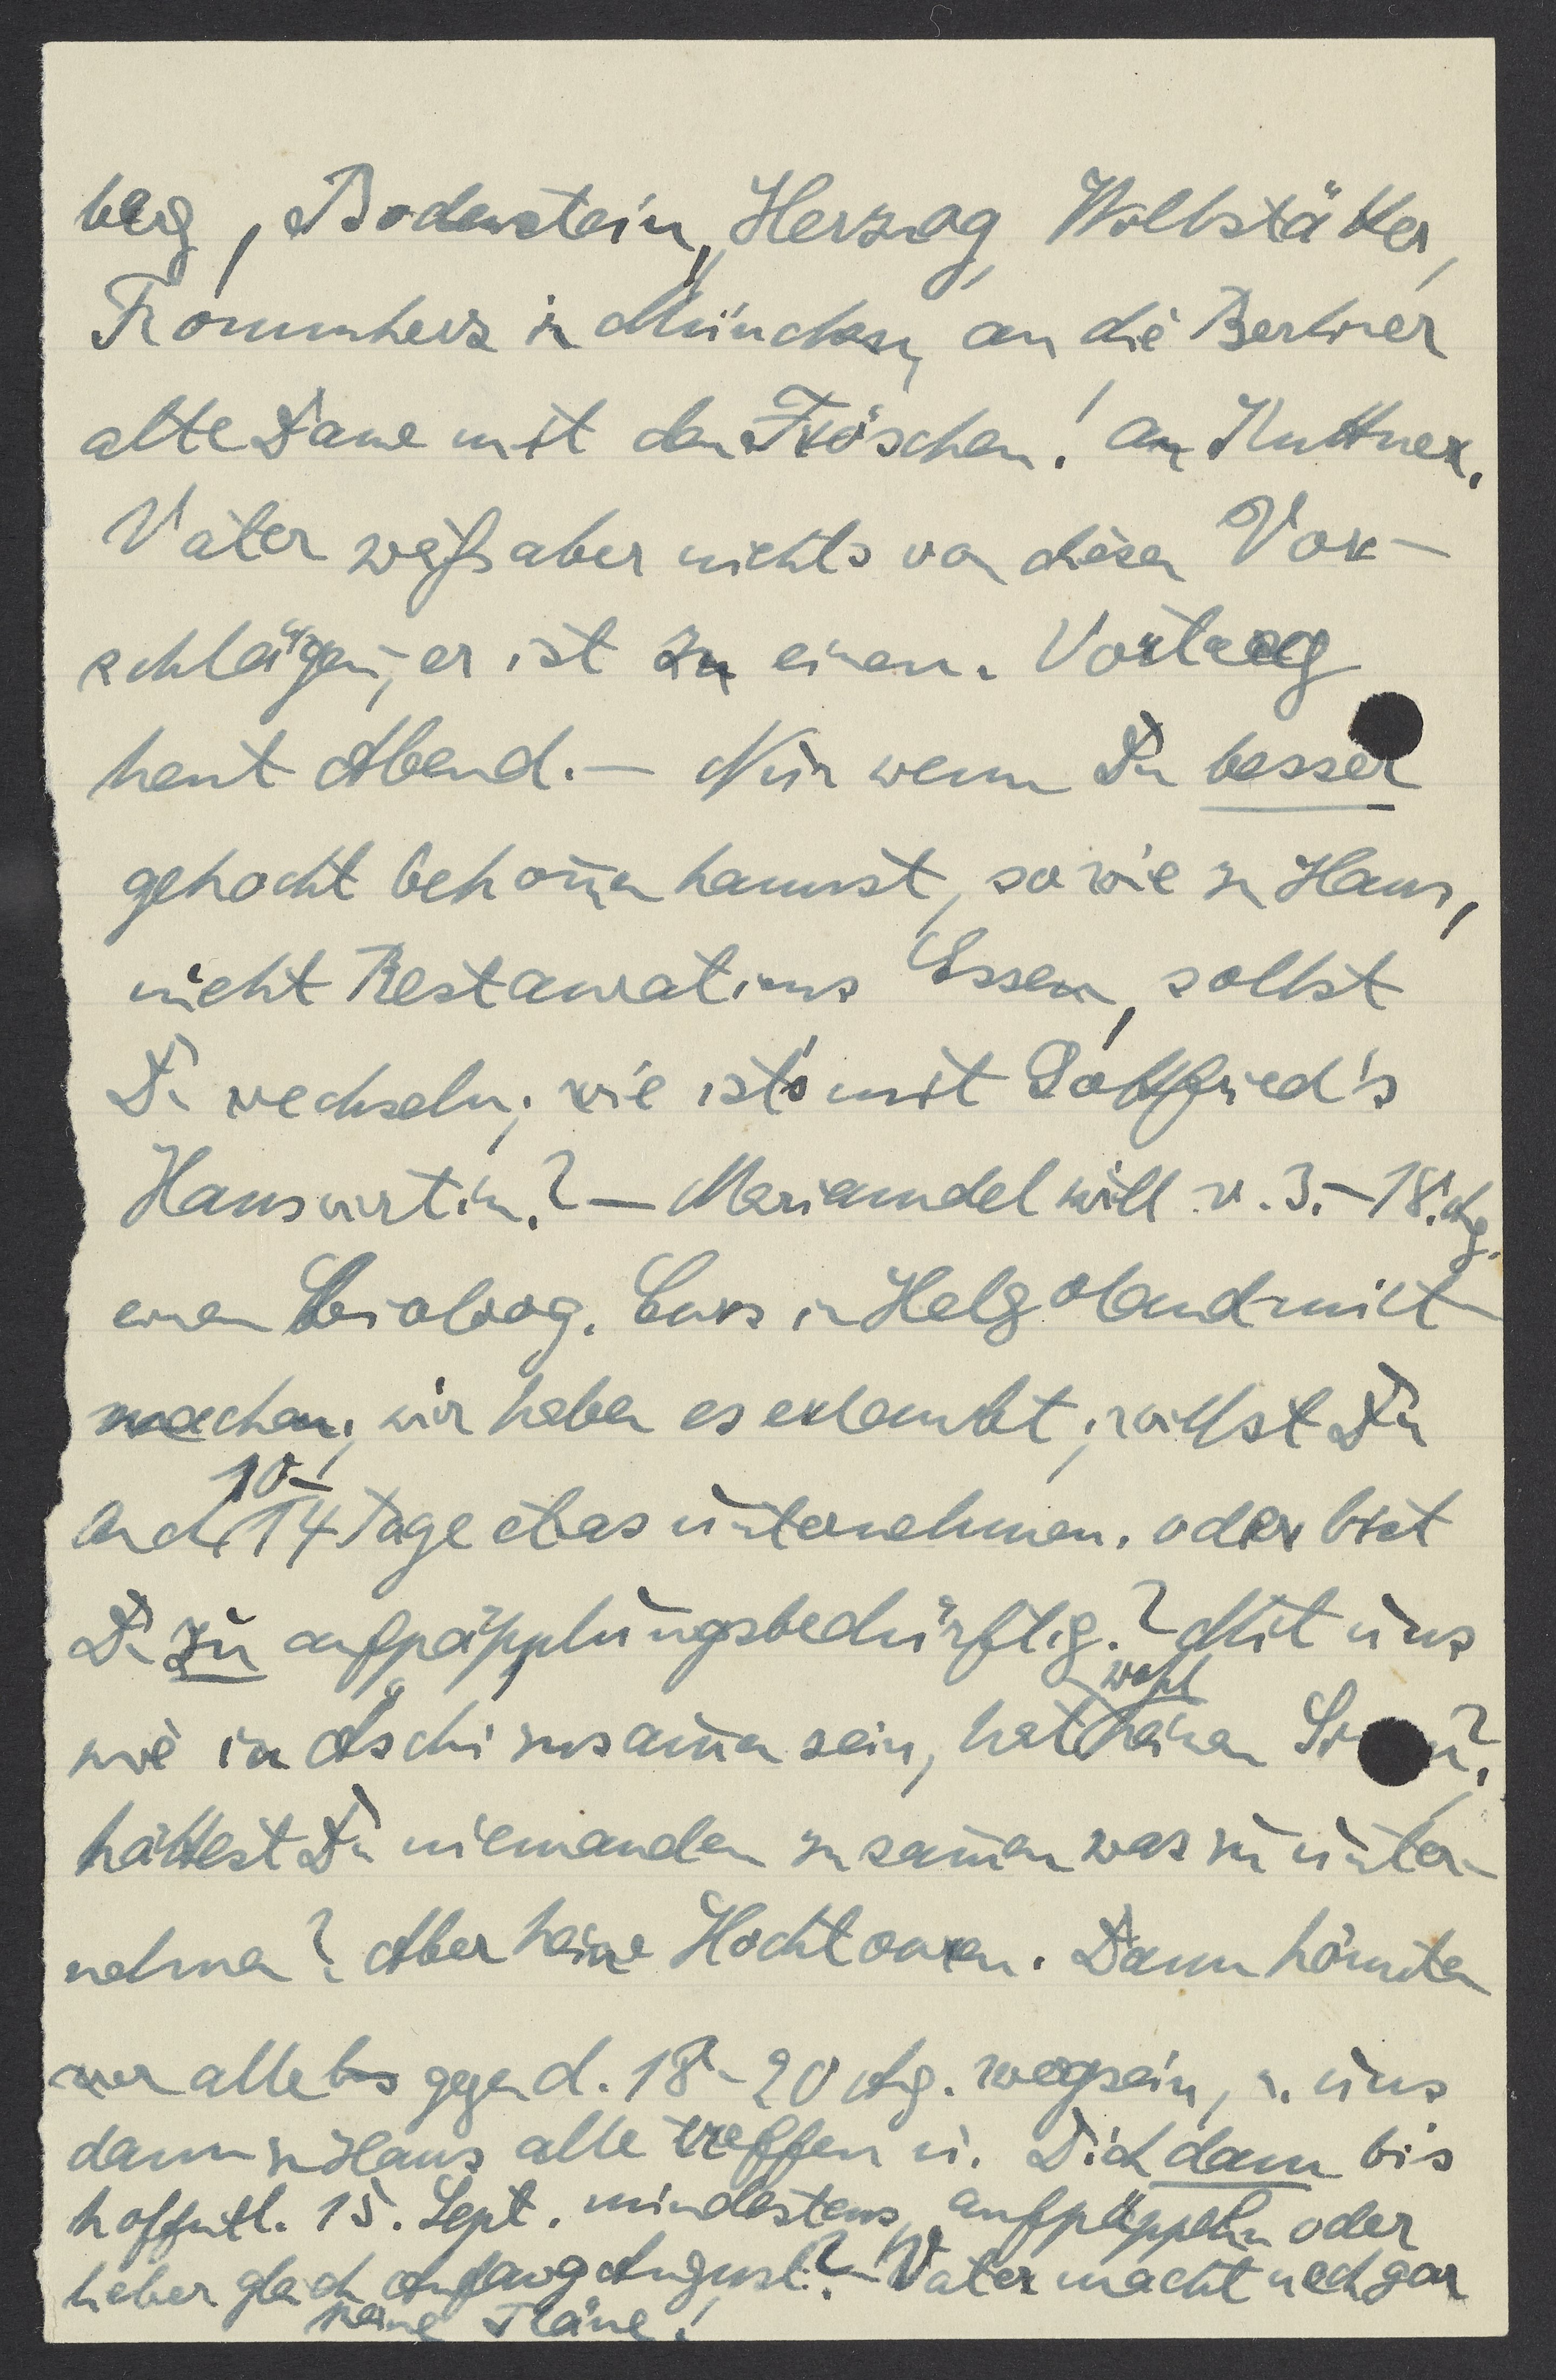 berg, Bodenstein, Herzog, Wollstätter,
Frommherz in München, an die Berliner
alte Dame mit den Fröschen! an Kuttner.
Vater weiß aber nichts von diesen Vor-
schlägen, er ist zu einem Vortrag
heut Abend. — Nur wenn Du besser
gekocht bekom̅en kannst, so wie zu Haus,
nicht Restaurations Essen, sollst
Du wechseln; wie ist's mit Gottfried's
Hauswirtin? — Mariandel will v. 3.-18. Ag.
einen bioloog. Curs in Helgoland mit-
machen; wir haben es erlaubt; willst Du
auch 10-14 Tage etwas unternehmen. oder bist
Du zu aufpäpplungsbedürftig? Mit uns
wie in Äschi zusam̅en sein, hat wohl keinen Sinn?,
hättest Du niemanden zusam̅en was zu unter-
nehmen? Aber keine Hochtouren. Dann könnten
wir alle bis gegen d. 18-20 Ag. wegsein, u. uns
dann zu Haus alle treffen u. Dich dann bis
hoffentl. 15. Sept. mindestens aufpäppeln oder
lieber gleich Anfang August? — Vater macht noch gar
keine Pläne!